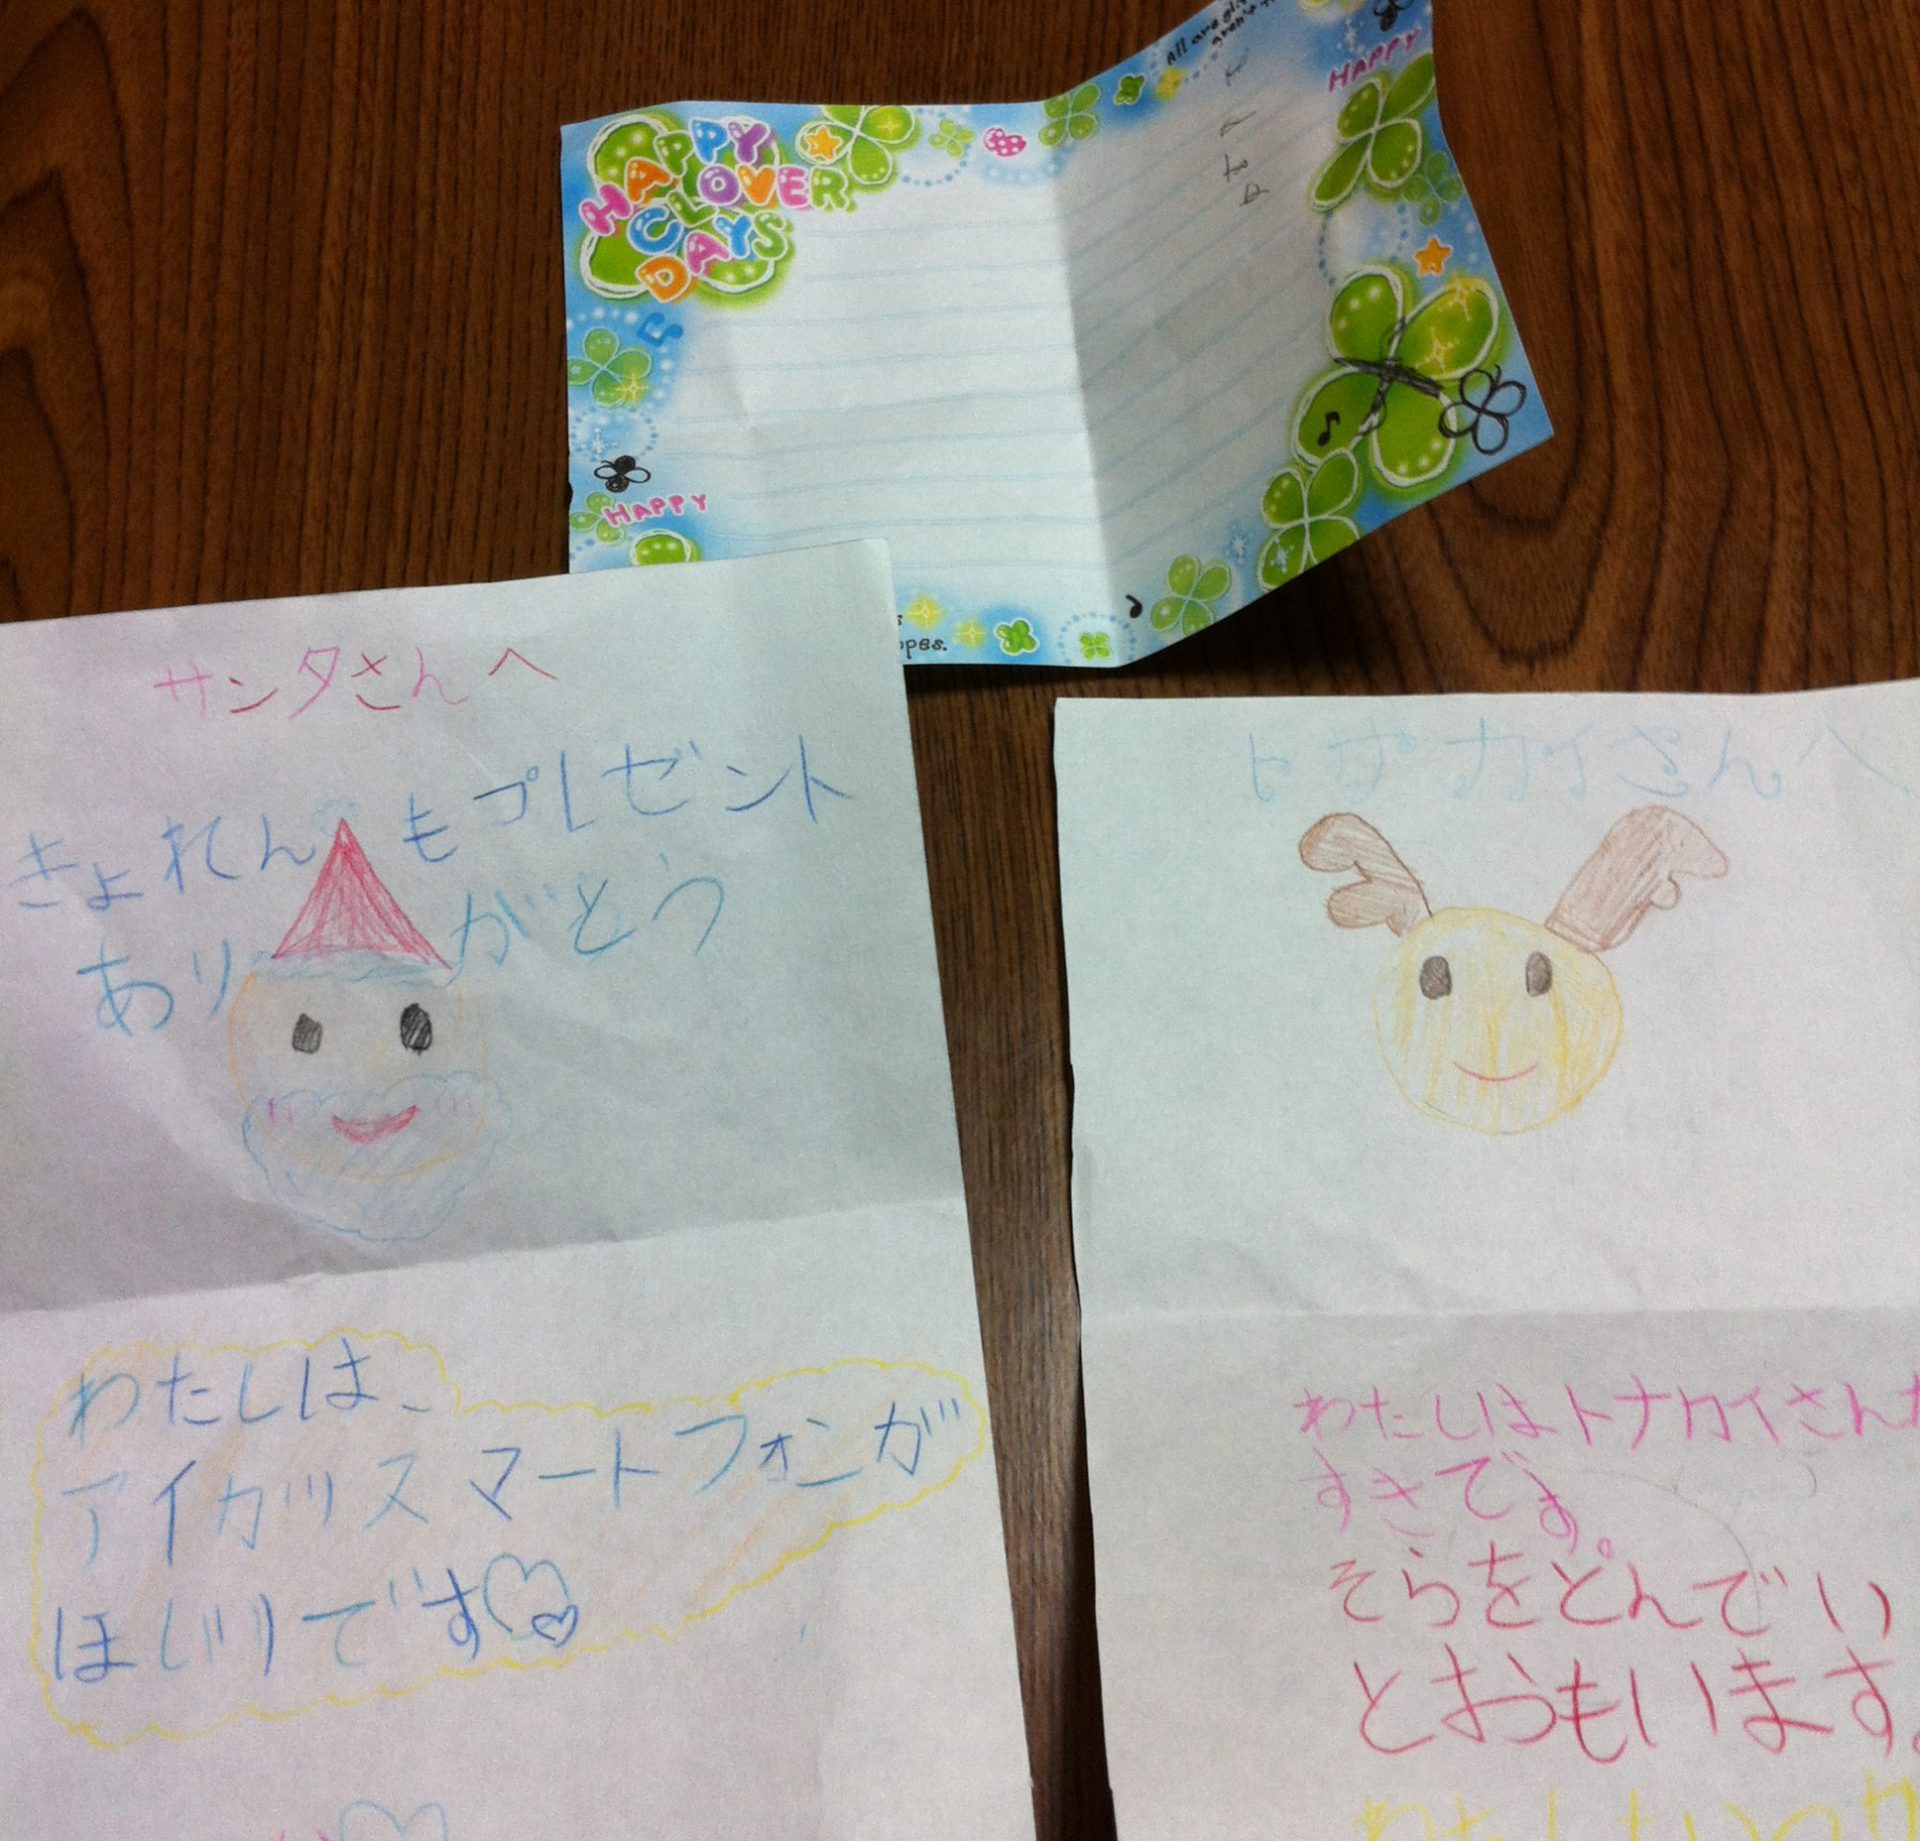 HAPPY
CLOVER
DAYS
HAPPY
HAPPY
サンタさんへ
きょれんもプレゼント
ありがとう
わたしは、
アイカツスマートフォンが
ほしいです
トナカイさんへ
わたしはトナカイさん
すきです。
そらをとんでい
とおもいます。